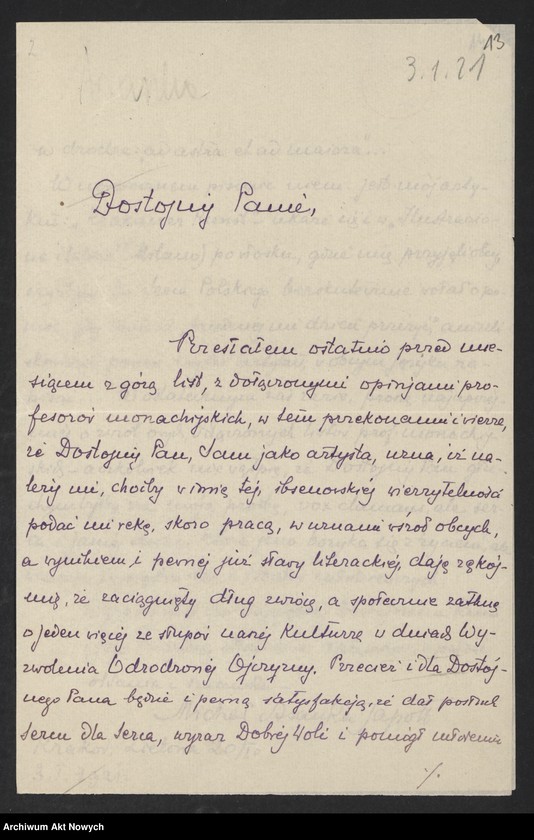 13
3.1.21
Dostojny Panie,
Przesłałem ostatnio przed mie-
siącem z górą list, z dołączonymi opinjami pro-
fesorów monachijskich, w tem przekonaniu i wierze,
że Dostojny Pan, Sam jako artysta, uzna, iż na-
leży mi, choćby w imię tej, ibsenowskiej wierzytelności
podać mi rękę, skoro pracą, w uznaniu wśród obcych,
a wynikiem i pewnej już sławy literackiej, dają rękoj-
mię, że zaciągnięty dług zwrócę, a społecznie zatknę
o jeden więcej ze słupów naszej Kultury w dniach Wy-
zwolenia Odrodzonej Ojczyzny. Przecież i dla Dostoj-
nego Pana będzie i pewną satysfakcją, że dał posłuch
sercu dla serca, wyraz Dobrej Woli i pomógł
./.
Archiwum Akt Nowych